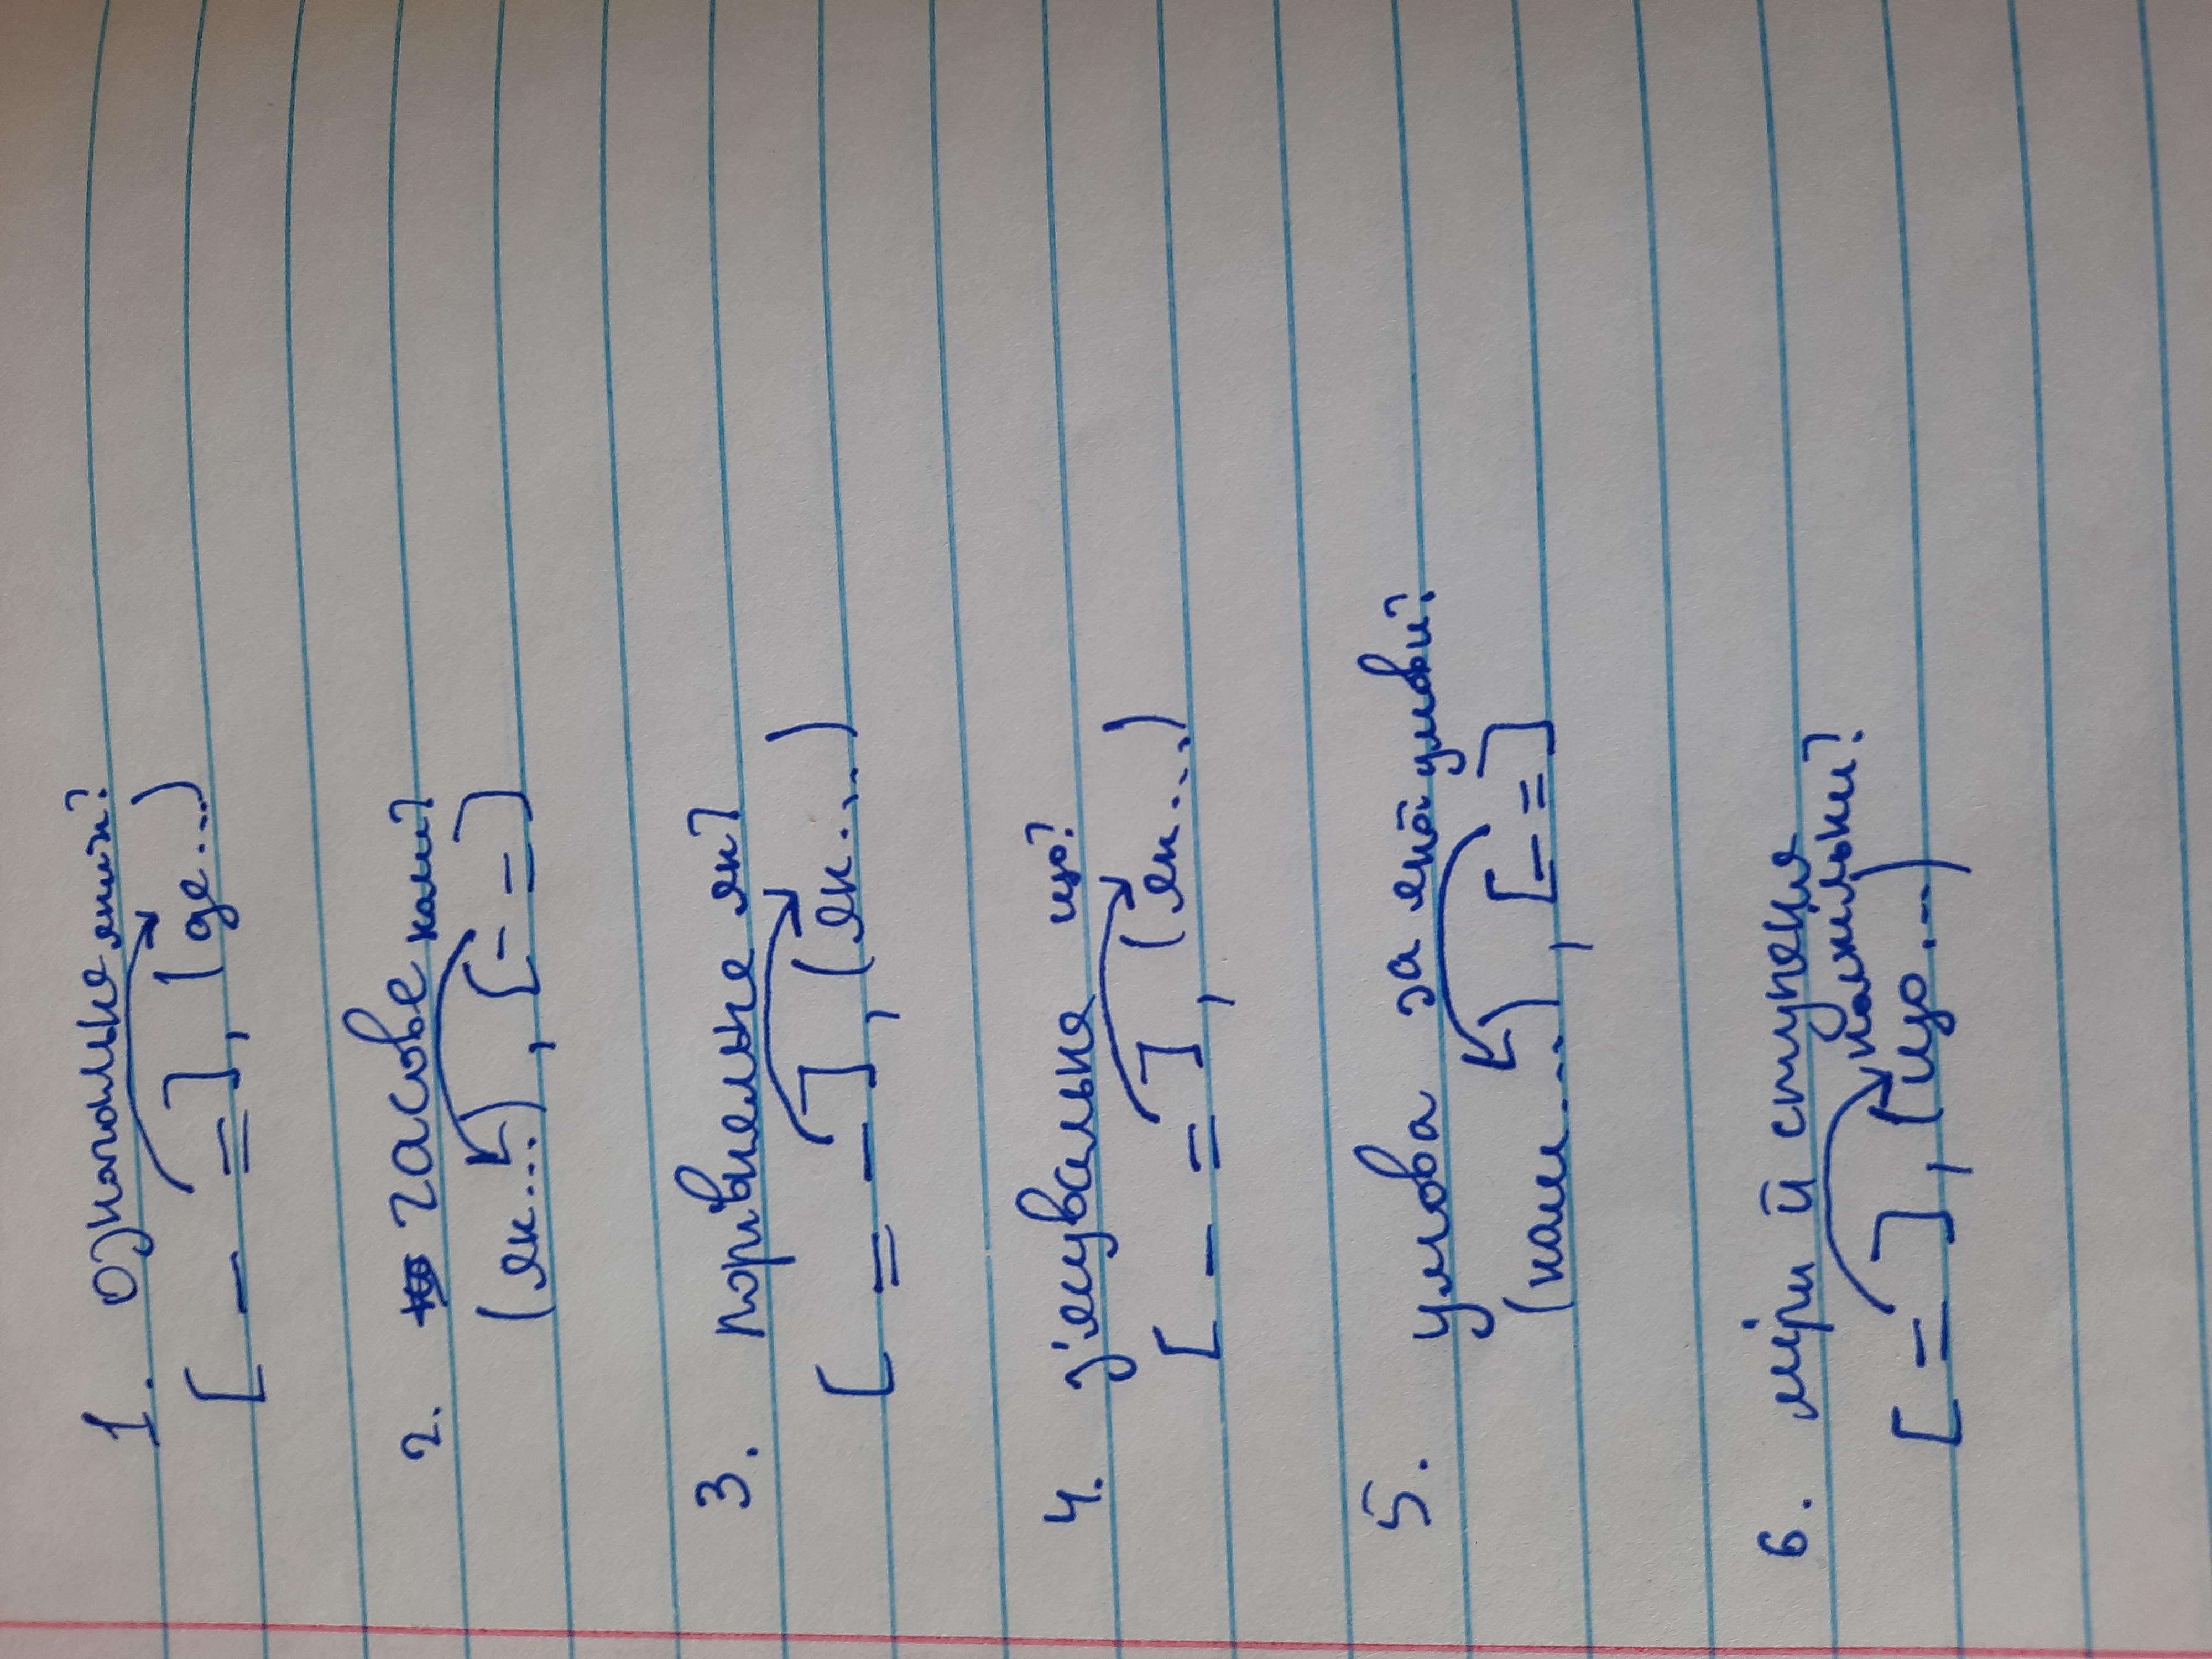 1. означальне який?
[ — = ], (де...)
2. часове коли?
(як...), [ — = ]
3. порівняльне як?
[ = — ], (як...)
4. з'ясувальне що?
[ — = ], (як...)
5. умова за якої умови?
(коли...), [ — = ]
6. міри й ступеня
наскільки?
[ = — ], (що...)